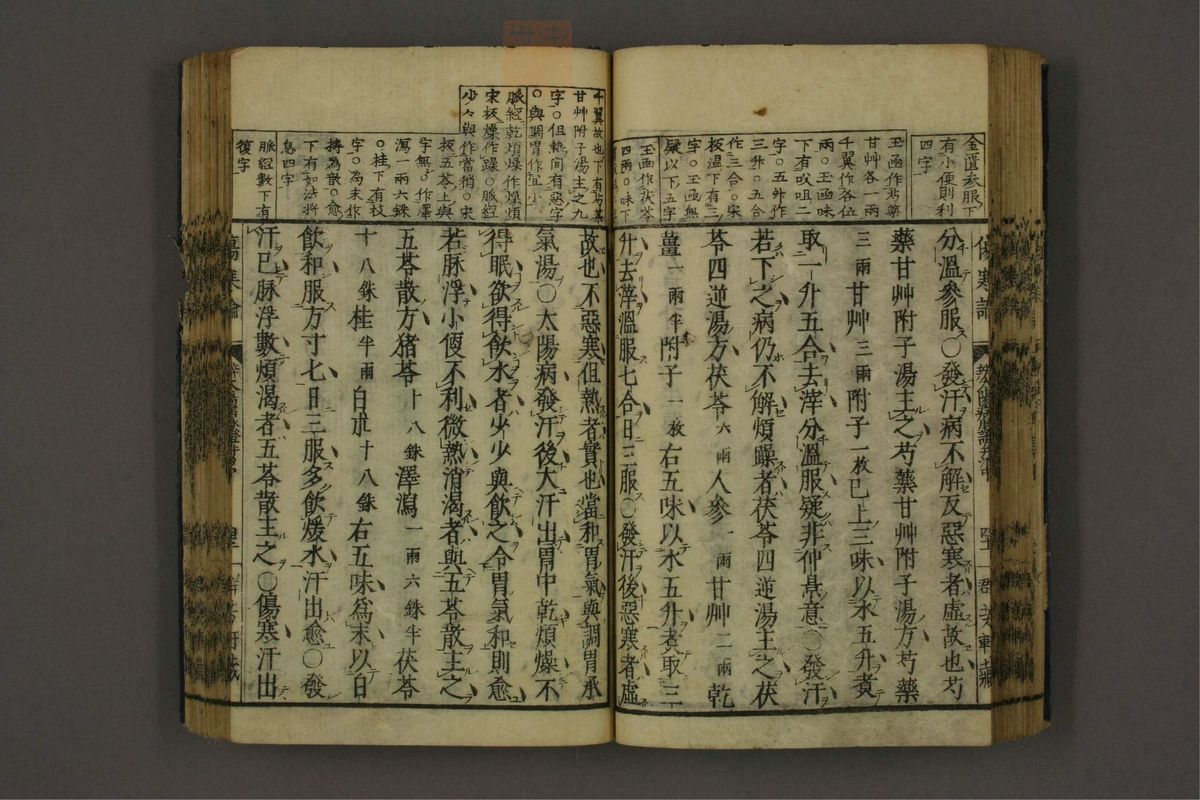 金匱參服下
有小便則利
四字
玉函作芍藥
甘艸各一兩
千翼作各伍
兩○玉函味
下有㕮咀二
字○五外作
三升○五合
作三合○宋
板溫下有三
字○玉函無
疑以下五字
玉函作茯苓
四兩○味下
分溫參服○發汗病不解反惡寒者虛故也芍
藥甘艸附子湯主之芍藥甘艸附子湯方芍藥
三兩甘艸三兩附子一枚已上三味以水五升煑
取一升五合去滓分溫服疑非仲景意○發汗
若下之病仍不解煩躁者茯苓四逆湯主之茯
苓四逆湯方茯苓六兩人參一兩甘艸二兩乾
薑一兩半附子一枚右五味以水五升煑取三
升去滓溫服七合日三服○發汗後惡寒者虛
千翼故也下有芍藥
甘艸附子湯主之九
字○但熱間有惡字
○與調胃作宜小
脈經乾煩燥作燥煩
宋板燥作躁○脈經
少々與作當稍○宋
板五苓上與
字無○作澤
瀉一兩六銖
○桂下有枝
字○為末作
擣為散○愈
下有如法將
息四字
脈經數下有
復字
故也不惡寒但熱者實也當和胃氣與調胃承
氣湯○太陽病發汗後大汗出胃中乾煩燥不
得眠欲得飲水者少少與飲之令胃氣和則愈
若脉浮小便不利微熱消渴者與五苓散主之
五苓散方猪苓十八銖澤瀉一兩六銖半茯苓
十八銖桂半兩白朮十八銖右五味爲末以白
飲和服方寸匕日三服多飲煖水汗出愈○發
汗已脉浮數煩渴者五苓散主之○傷寒汗出